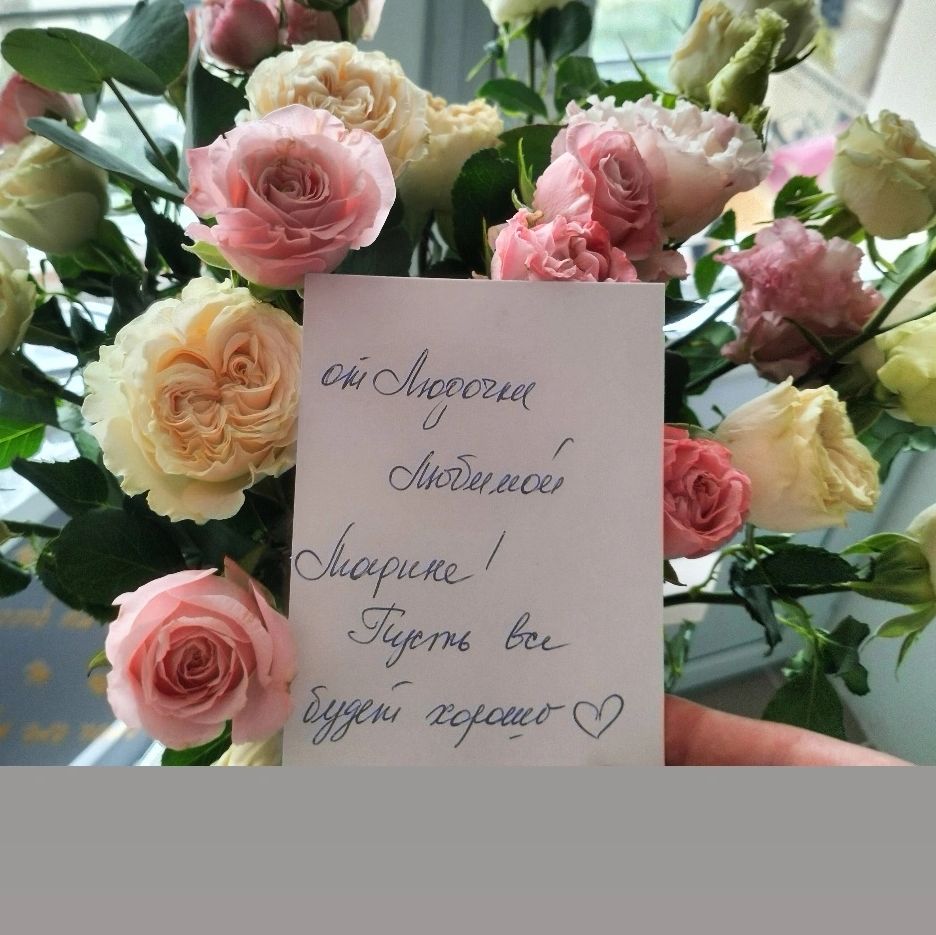 от Людочки
Любимой
Марине!
Пусть все
будет хорошо ♡